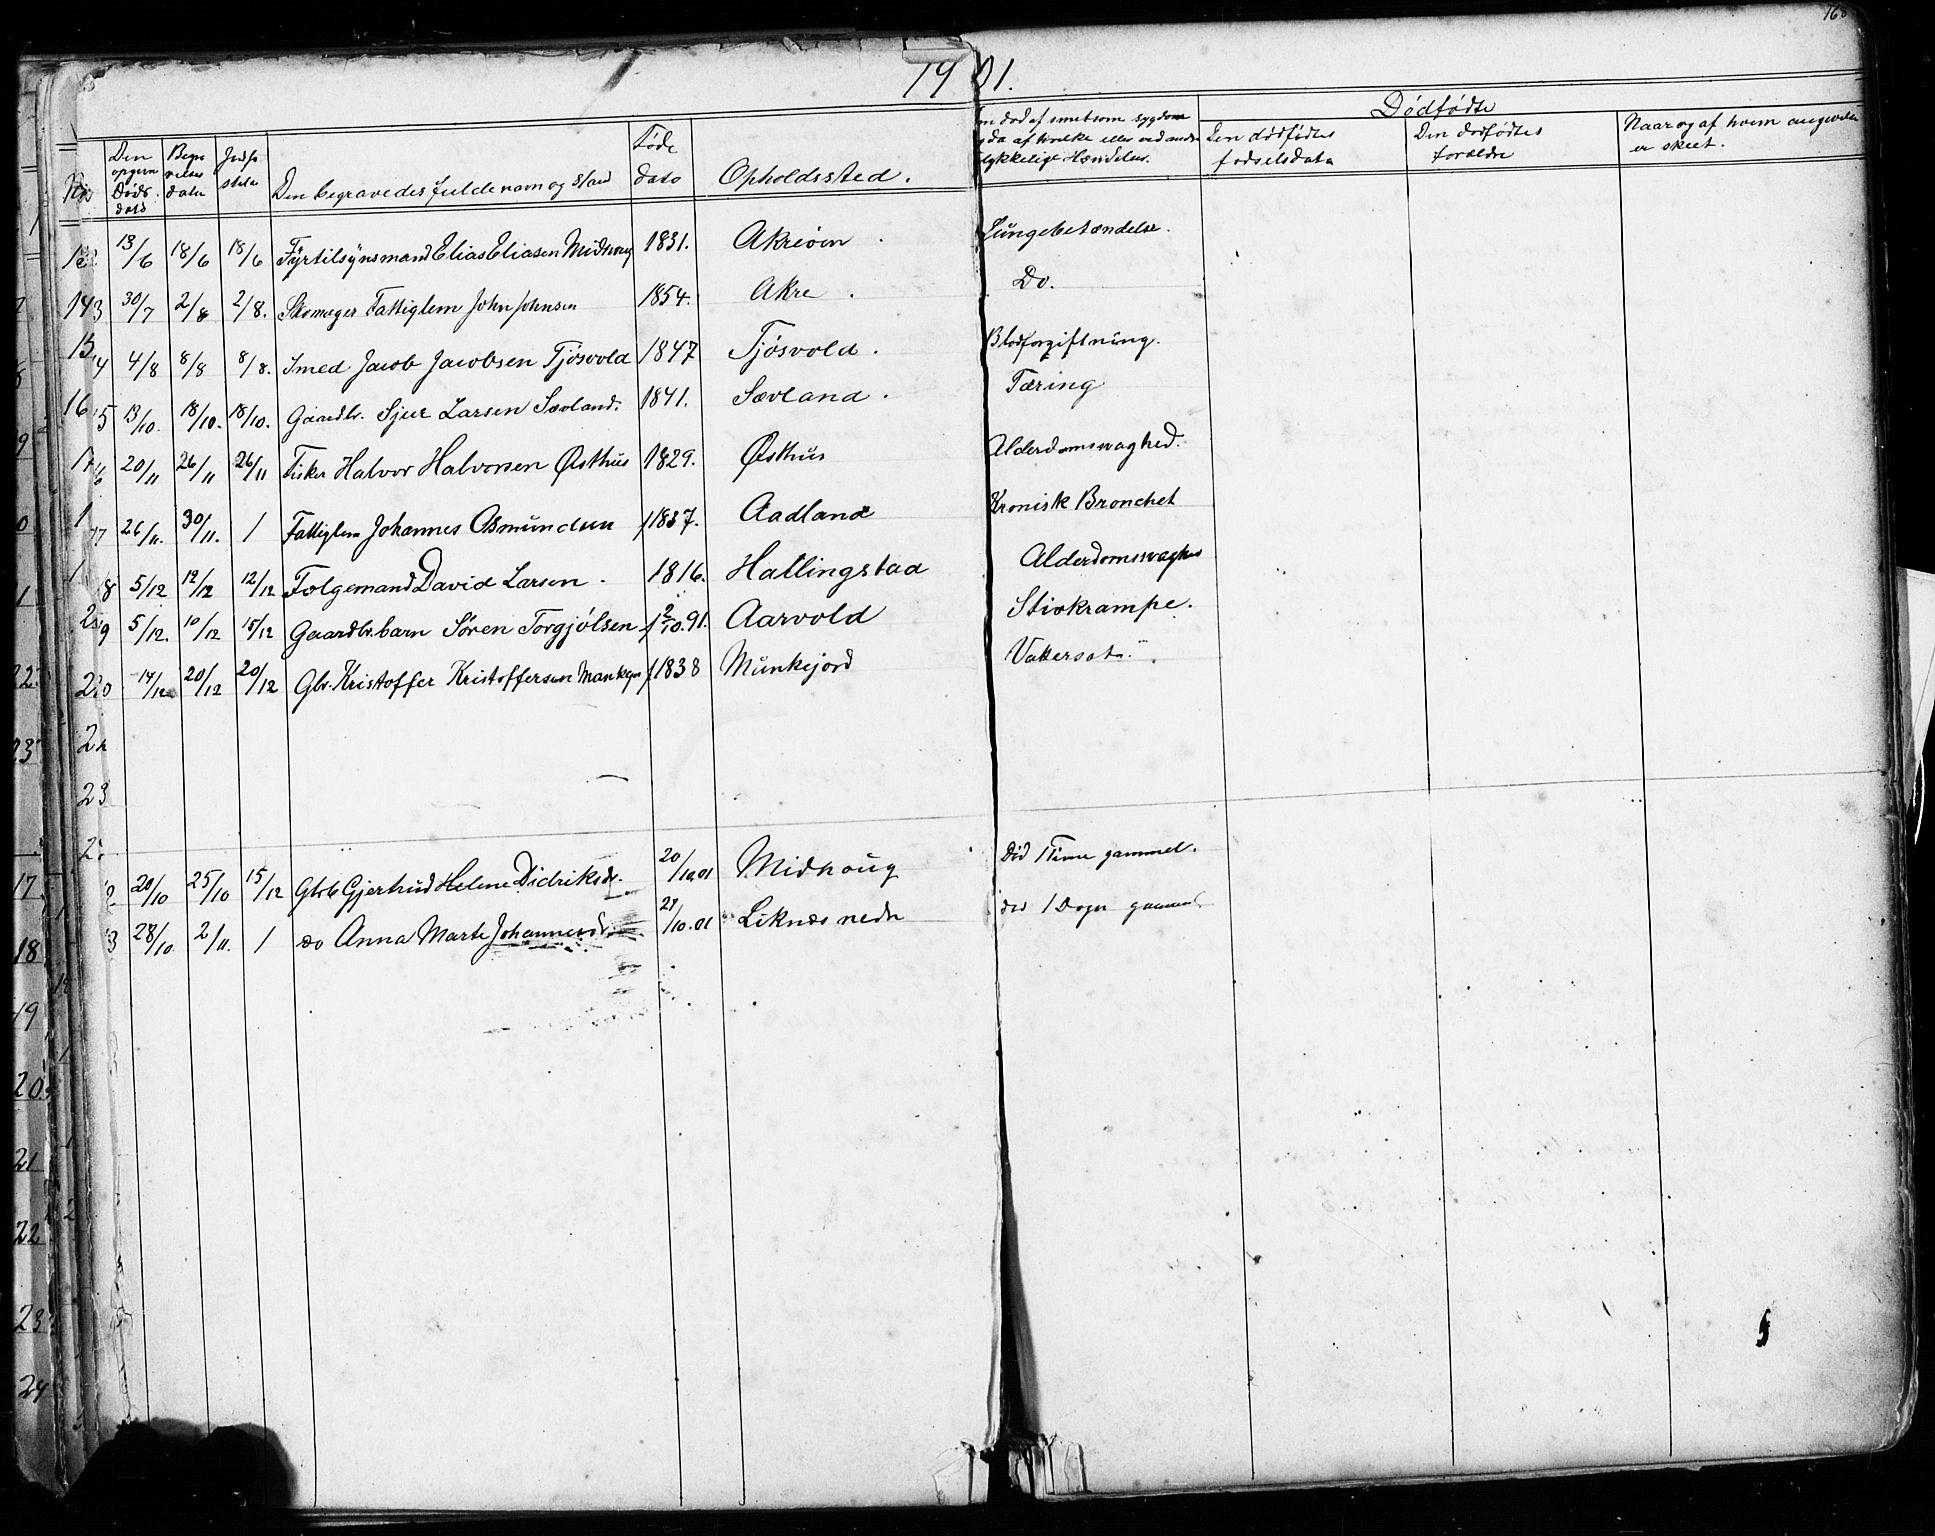 168
1901.
Dødfødte
No Den opgivne Døds dato Begravelses dato Jordfæstelse Den begravedes fulde navn og Stand Føde dato Opholdssted. død af smitsom sygdom eller ved andre ulykkelige Hændelser. Den dødfødtes fødselsdato Den dødfødtes forældre Naar og af hvem angivelse er skeet.
12 13/6 18/6 18/6 Fyrtilsynsmand Elias Eliasen Midhoug 1831. Akreøen Lungebetændelse.
13 30/7 2/8 2/8. Skomager Fattiglem John Johnsen 1854. Akre Do.
14 4/8 8/8 8/8. Smed Jacob Jacobsen Tjøsvold 1847 Tjösvold. Blodforgiftning.
15 13/10. 18/10. 18/10. Gaardbr. Sjur Larsen Sævland. 1841. Sævland. Tæring
16 20/11 26/11 26/11 Fisker Halvor Halvorsen Østhus 1829. Østhus Alderdomssvaghed.
17 26/11. 30/11. / Fattiglem Johannes Osmundsen 1837. Aadland Kronisk Bronchet
18 5/12 12/12 12/12 Folgemand David Larsen. 1816. Hallingstad Alderdomssvaghed
19 5/12. 10/12 15/12 Gaardbr.barn Sören Torgjólsen 2/10.91. Aarvold Stivkrampe.
20 14/12 20/12 20/12 Gbr. Kristoffer Kristoffersen 1838 Munkejord Vattersot.
2 20/10 25/10 15/12 Gbrb Gjertrud Helene Didriksdr. 20/10.01 Midhoug Død 1 Time gammel.
3 28/10. 2/11. / do Anna Marte Johannesdr 27/10.01 Liknæs nedr død 1 Dogn gammel